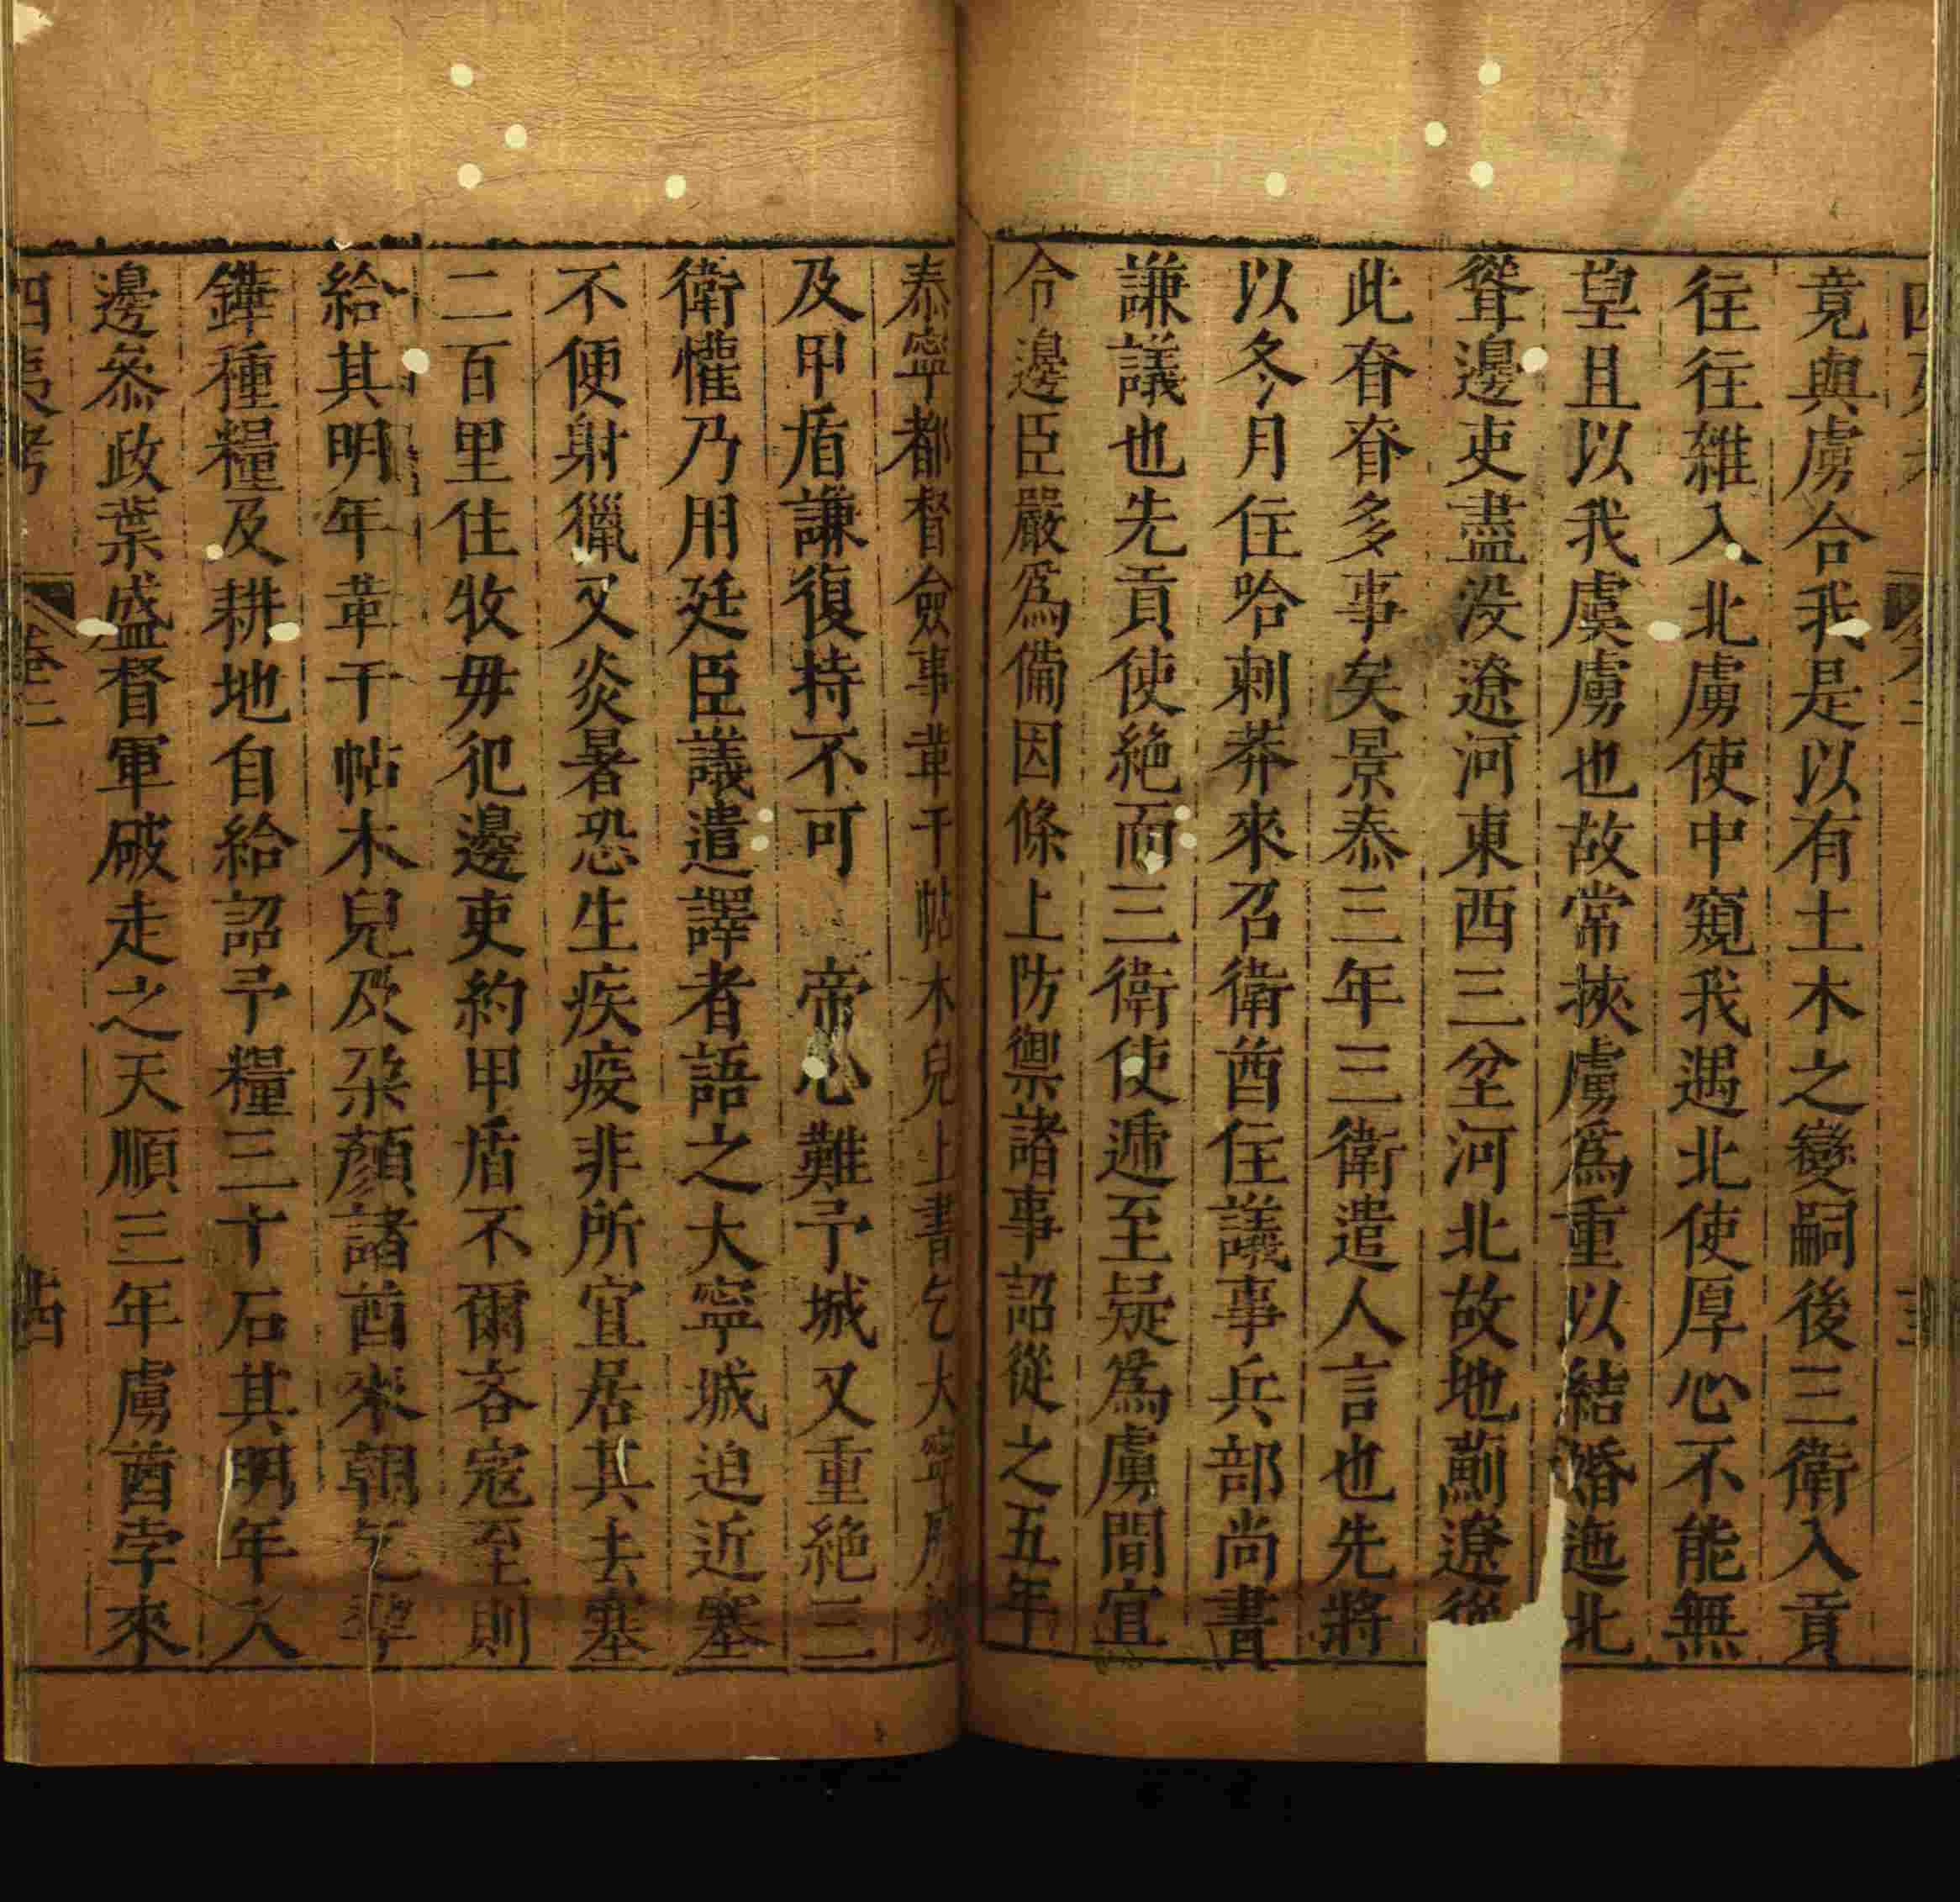 竟與虜合我是以有土木之變嗣後三衛入貢
往往雜入北虜使中窺我遇北使厚心不能無
望且以我虞虜也故常挾虜爲重以結婚迤北
聳邊吏盡没遼河東西三坌河北故地薊遼
此脊脊多事矣景泰三年三衛遣人言也先將
以冬月住哈剌莽來召衛酋住議事兵部尚書
謙議也先貢使絶而三衛使遞至疑爲虜間宜
令邊臣嚴爲備因條上防禦諸事詔從之五年
泰寧都督僉事革干帖木兒上書乞大寧
及甲盾謙復持不可 帝心難予城又重絶三
衛懽乃用廷臣議遣譯者語之大寧城迫近塞
不便射獵又炎暑恐生疾疫非所宜居其去塞
二百里住牧毋犯邊吏約甲盾不爾吝寇至則
給其明年革干帖木兒及朶顔諸酋來朝乞犂
鏵種糧及耕地自給詔予糧三十石其明年入
邊叅政葉盛督軍破走之天順三年虜酋孛來
四夷考 卷二